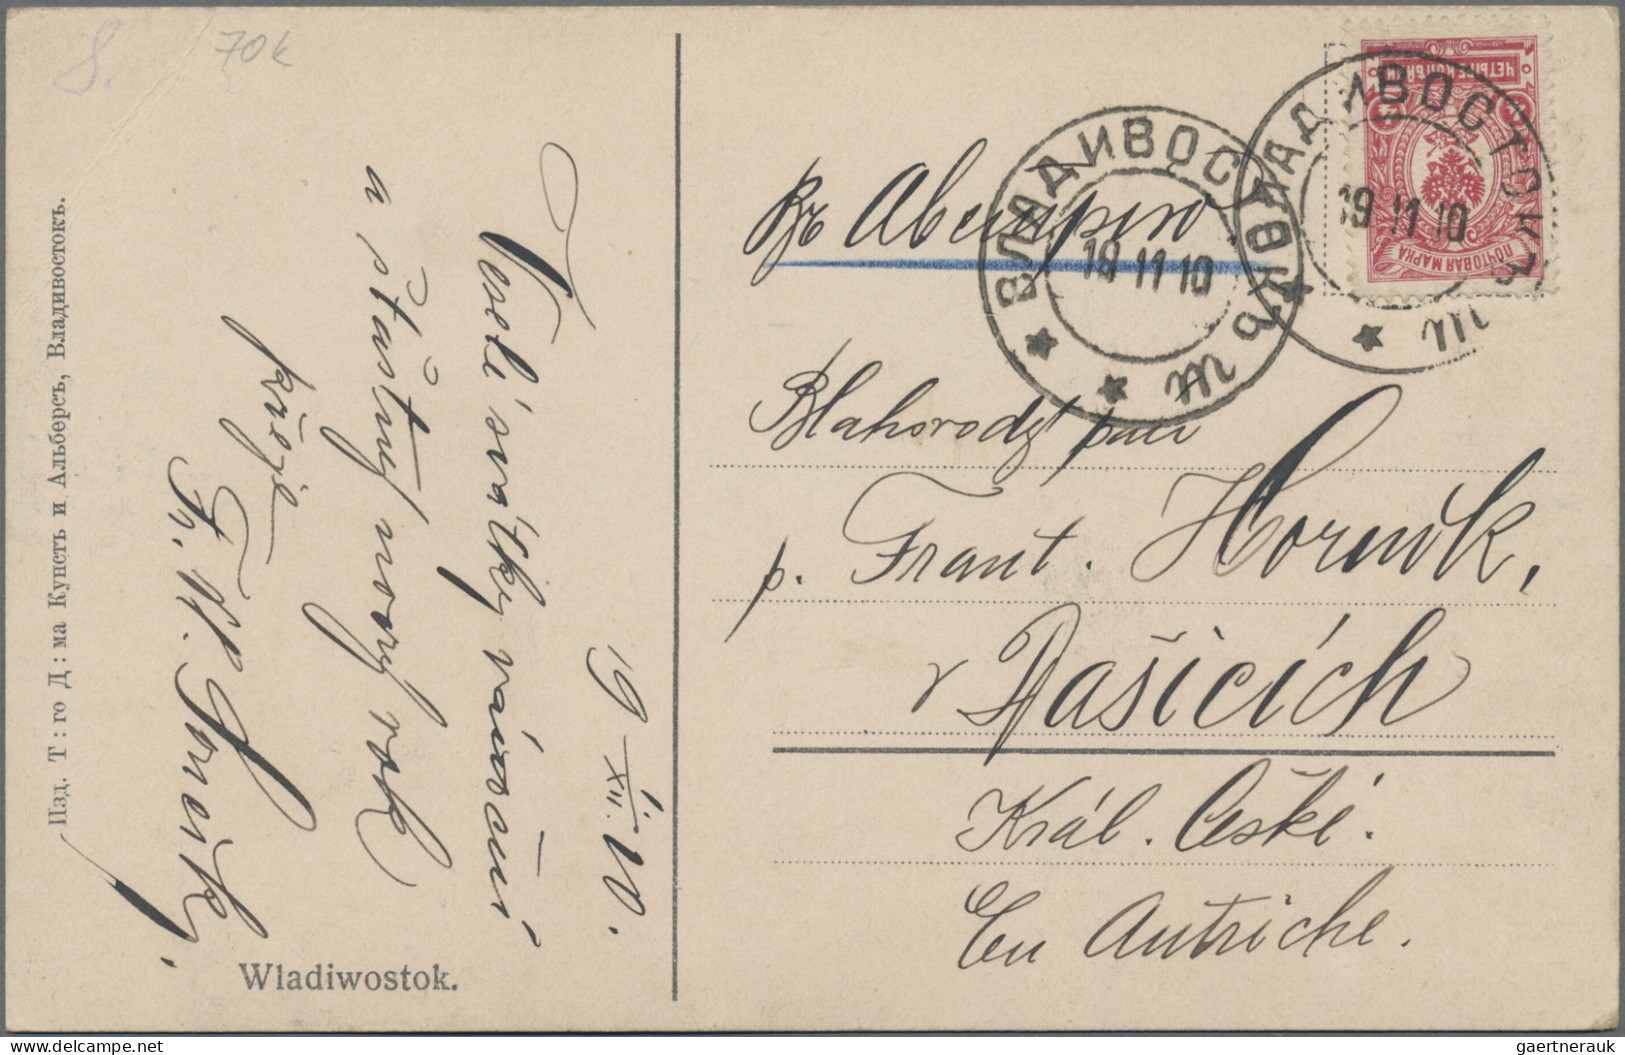 S.
70k
Изд. Т : го Д : ма Кунстъ и Альберсъ, Владивостокъ.
19/XII. 10.
Veselé svátky vánoční
a šťastný nový rok
přeje
Wladiwostok.
ЧЕТЫРЕ КОП
ПОЧТОВАЯ МАРКА
ВЛАДИВОСТОКЪ
19 11 10
ВЛАДИВОСТОКЪ
19 11 10
Въ Австрію
Blahorodý pan
p. Frant. Horník,
v Dašicích
Král. České.
En Autriche.
gaertnerauk